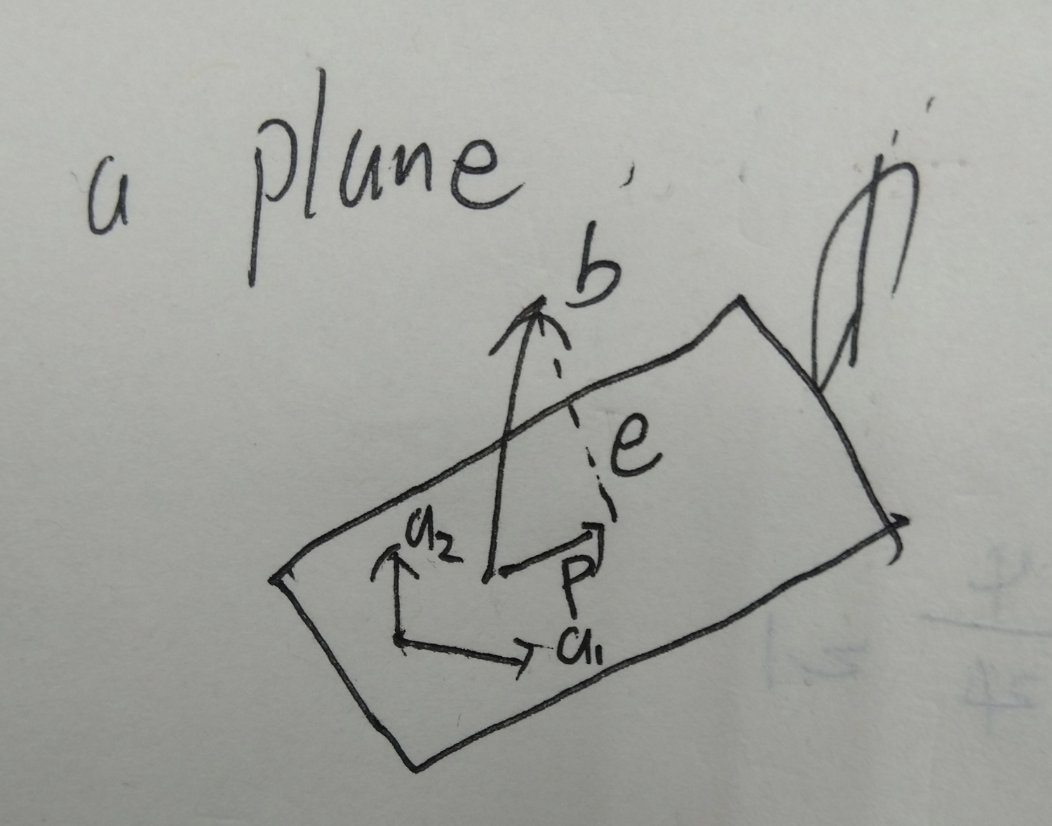 a plane
b
e
a2
p
a1